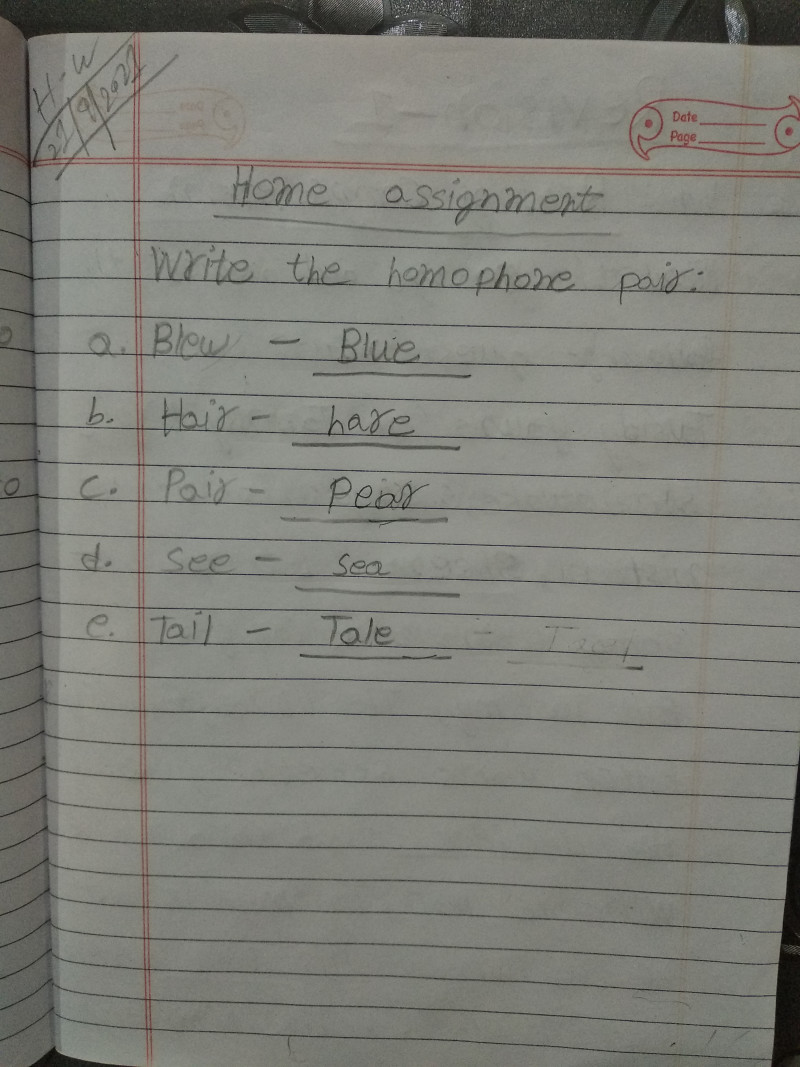 H-W
Date
Page
Home assignment
Write the homophone pair:
a. Blew - Blue
b. Hair - hare
c. Pair - Pear
d. See - Sea
e. Tail - Tale